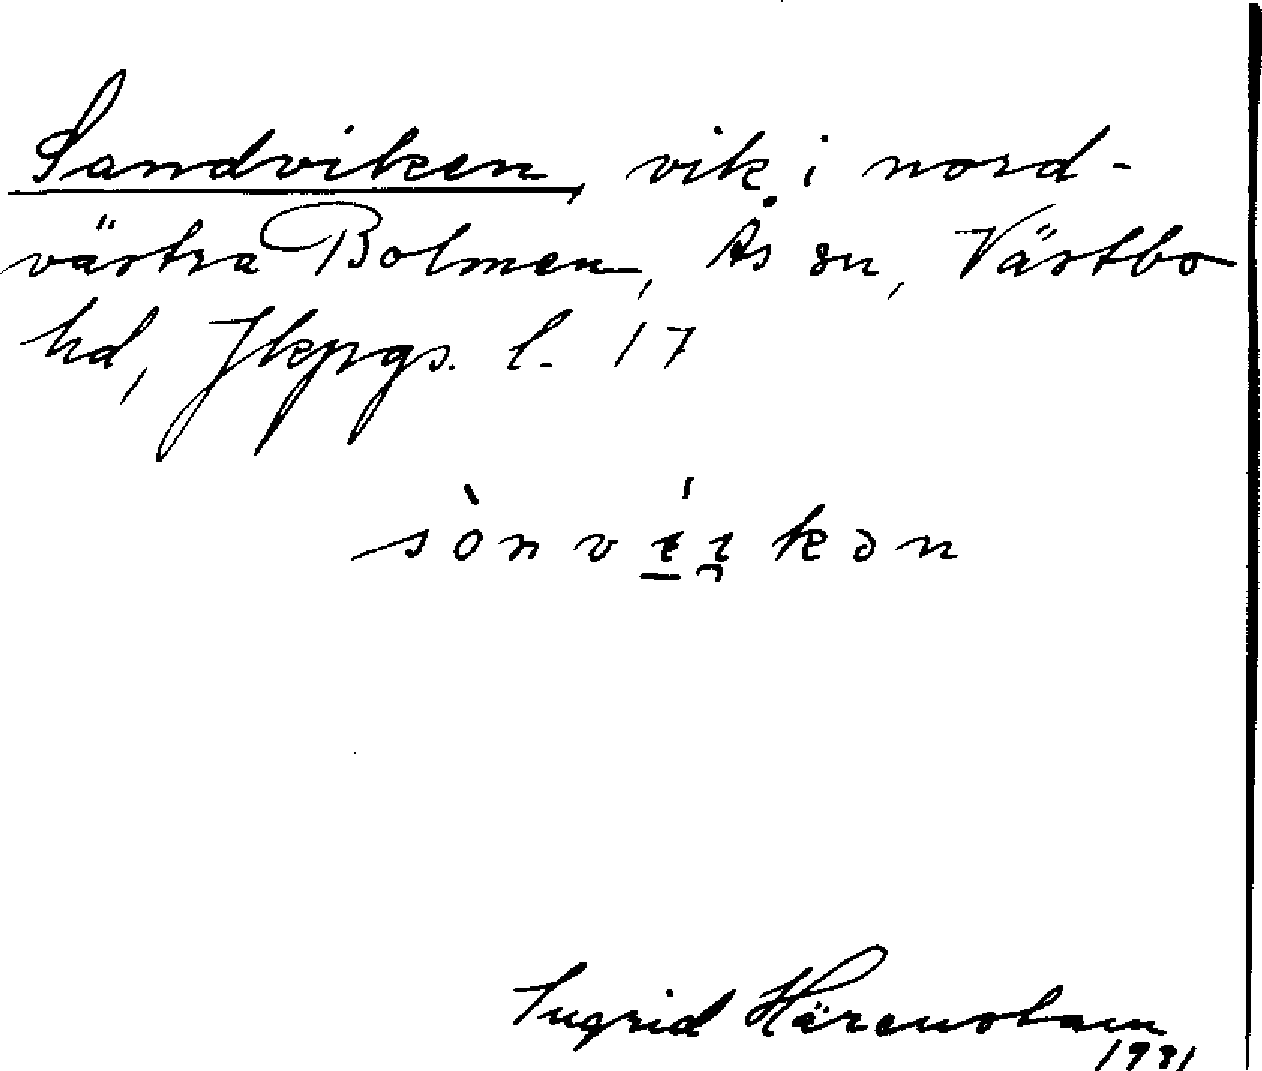 Sandviken, vik i nord-
västra Bolmen, Ås sn, Västbo
hd, Jkpgs. l. 17
sònvi̱í̯kən
Ingrid Härenstam
1931